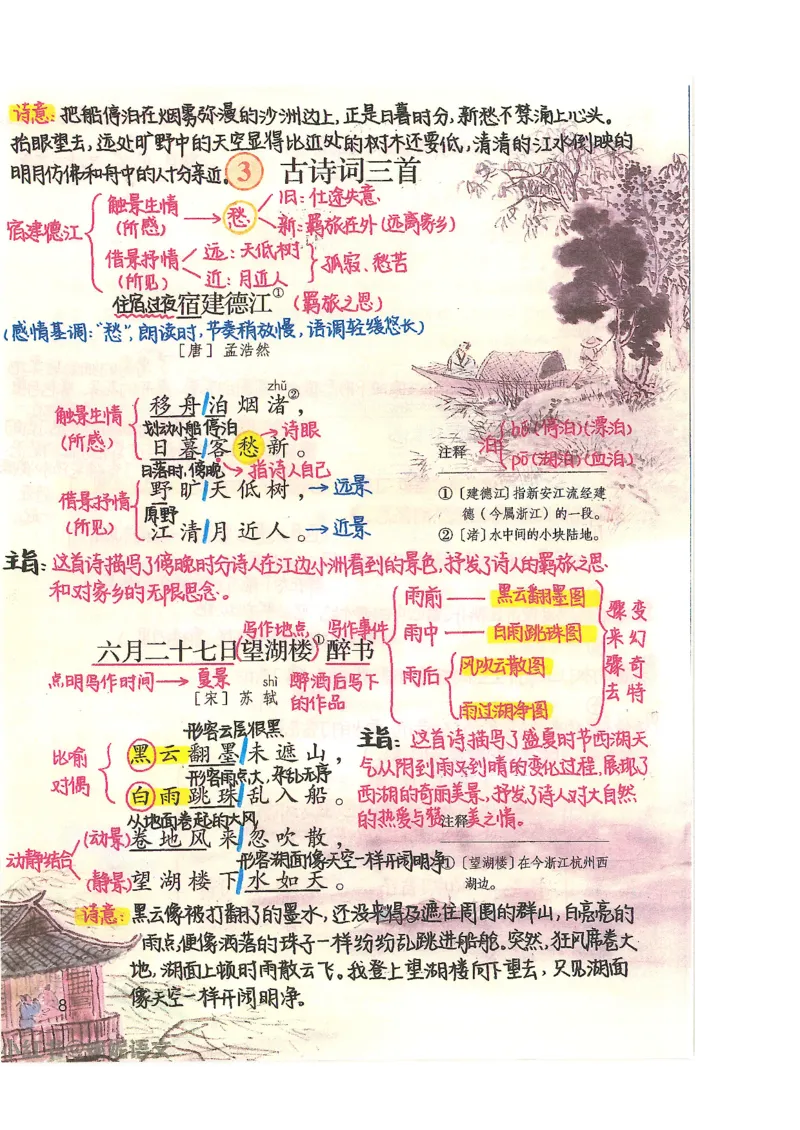 诗意：把船停泊在烟雾弥漫的沙洲边上，正是日暮时分，新愁不禁涌上心头。
抬眼望去，远处旷野中的天空显得比近处的树木还要低，清清的江水倒映的
明月仿佛和舟中的人十分亲近。
3 古诗词三首
宿建德江
触景生情
（所感）
愁
旧：仕途失意、
新：羁旅在外（远离家乡）
借景抒情
（所见）
远：天低树
近：月近人
孤寂、愁苦
住宿过夜
宿建德江①
（羁旅之思）
（感情基调："愁"，朗读时，节奏稍放慢，语调轻缓悠长）
［唐］孟浩然
触景生情
（所感）
zhǔ
移舟/泊烟渚②，
划动小船 停泊
诗眼
日暮/客愁新。
日落时，傍晚
指诗人自己
借景抒情
（所见）
野旷/天低树，→远景
原野
江清/月近人。→近景
注释
泊
bó（停泊）（漂泊）
pō（湖泊）（血泊）
①［建德江］指新安江流经建
德（今属浙江）的一段。
②［渚］水中间的小块陆地。
主旨：这首诗描写了傍晚时分诗人在江边小洲看到的景色，抒发了诗人的羁旅之思
和对家乡的无限思念。
写作地点 写作事件
六月二十七日望湖楼①醉书
点明写作时间→夏景
醉酒后写下
的作品
shì
［宋］苏轼
雨前——黑云翻墨图
雨中——白雨跳珠图
雨后
风吹云散图
雨过湖净图
骤来骤去
变幻奇特
比喻
对偶
形容云层很黑
黑云翻墨/未遮山，
形容雨点大，杂乱无序
白雨跳珠/乱入船。
从地面卷起的大风
动静结合
（动景）
卷地风来/忽吹散，
形容湖面像天空一样开阔明净
（静景）
望湖楼下/水如天。
主旨：这首诗描写了盛夏时节西湖天
气从阴到雨又到晴的变化过程，展现了
西湖的奇丽美景，抒发了诗人对大自然
的热爱与赞美之情。
注释
①［望湖楼］在今浙江杭州西
湖边。
诗意：黑云像被打翻了的墨水，还没来得及遮住周围的群山，白亮亮的
雨点便像洒落的珠子一样纷纷乱跳进船舱。突然，狂风席卷大
地，湖面上顿时雨散云飞。我登上望湖楼向下望去，只见湖面
像天空一样开阔明净。
8